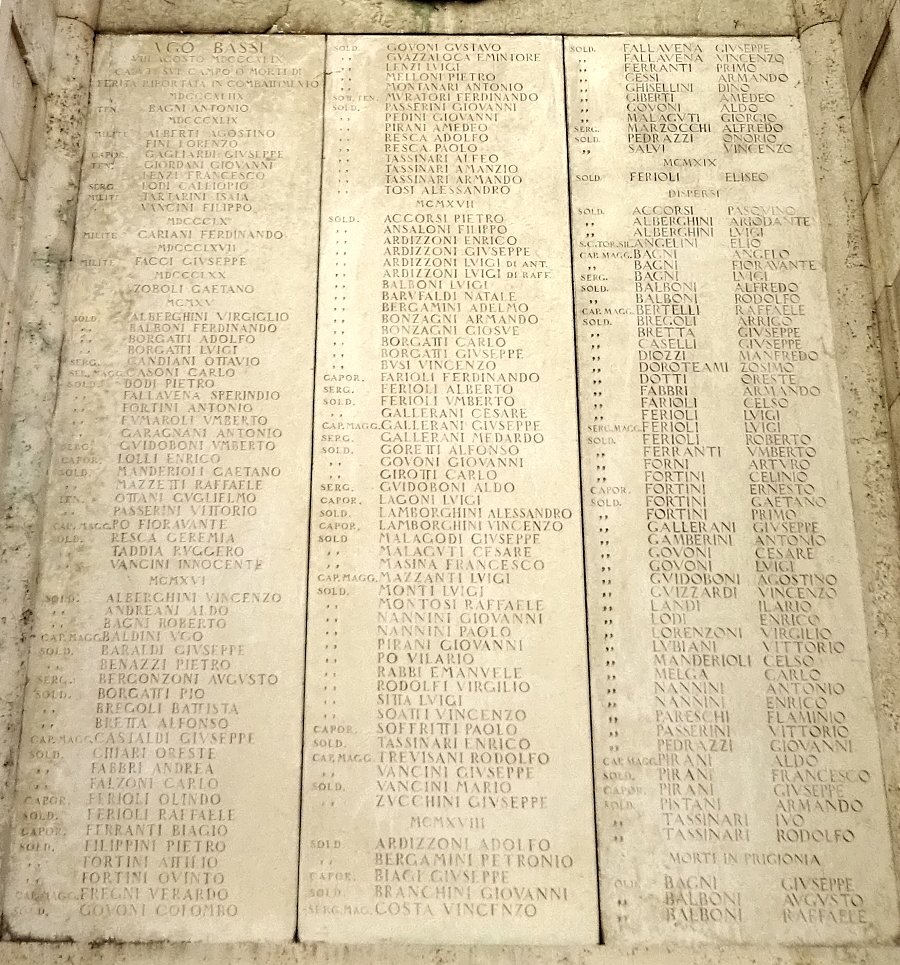 UGO BASSI
VIII AGOSTO MDCCCXLIX
CADUTI SUL CAMPO O MORTI DI
FERITA RIPORTATA IN COMBATTIMENTO
MDCCCXLVIII
TEN. BAGNI ANTONIO
MDCCCXLIX
MILITE ALBERTI AGOSTINO
FINI LORENZO
CAPOR. GAGLIARDI GIVSEPPE
TEN. GIORDANI GIOVANNI
LENZI FRANCESCO
SERG. LODI CALLIOPIO
MILITE TARTARINI ISAIA
VANCINI FILIPPO
MDCCCLX
MILITE CARIANI FERDINANDO
MDCCCLXVII
MILITE FACCI GIVSEPPE
MDCCCLXX
ZOBOLI GAETANO
MCMXV
SOLD. ALBERGHINI VIRGIGLIO
,, BALBONI FERDINANDO
,, BORGATTI ADOLFO
,, BORGATTI LVIGI
SERG. CANDIANI OTTAVIO
SER. MAGG. CASONI CARLO
SOLD. DODI PIETRO
,, FALLAVENA SPERINDIO
,, FORTINI ANTONIO
,, FVMAROLI VMBERTO
,, GARAGNANI ANTONIO
SERG. GVIDOBONI VMBERTO
CAPOR. LOLLI ENRICO
SOLD. MANDERIOLI GAETANO
,, MAZZETTI RAFFAELE
TEN. OTTANI GVGLIELMO
PASSERINI VITTORIO
CAP. MAGG. PO FIORAVANTE
SOLD. RESCA GEREMIA
,, TADDIA RVGGERO
,, VANCINI INNOCENTE
MCMXVI
SOLD. ALBERGHINI VINCENZO
,, ANDREANI ALDO
,, BAGNI ROBERTO
CAP. MAGG. BALDINI VGO
SOLD. BARALDI GIVSEPPE
,, BENAZZI PIETRO
SERG. BERGONZONI AVGVSTO
SOLD. BORGATTI PIO
,, BREGOLI BATTISTA
,, BRETTA ALFONSO
CAP. MAGG. CASTALDI GIVSEPPE
SOLD. CHIARI ORESTE
,, FABBRI ANDREA
,, FALZONI CARLO
CAPOR. FERIOLI OLINDO
SOLD. FERIOLI RAFFAELE
CAPOR. FERRANTI BIAGIO
SOLD. FILIPPINI PIETRO
,, FORTINI ATTILIO
,, FORTINI QVINTO
CAP. MAGG. FREGNI VERARDO
SOLD. GOVONI COLOMBO
SOLD. GOVONI GVSTAVO
,, GVAZZALOCA EMINIORE
,, LENZI LVIGI
,, MELLONI PIETRO
,, MONTANARI ANTONIO
SOT. TEN. MVRATORI FERDINANDO
SOLD. PASSERINI GIOVANNI
,, PEDINI GIOVANNI
,, PIRANI AMEDEO
,, RESCA ADOLFO
,, RESCA PAOLO
,, TASSINARI ALFEO
,, TASSINARI AMANZIO
,, TASSINARI ARMANDO
,, TOSI ALESSANDRO
MCMXVII
SOLD. ACCORSI PIETRO
,, ANSALONI FILIPPO
,, ARDIZZONI ENRICO
,, ARDIZZONI GIVSEPPE
,, ARDIZZONI LVIGI DI ANT.
,, ARDIZZONI LVIGI DI RAFF.
,, BALBONI LVIGI
,, BARVFALDI NATALE
,, BERGAMINI ADELMO
,, BONZAGNI ARMANDO
,, BONZAGNI GIOSVE
,, BORGATTI CARLO
,, BORGATTI GIVSEPPE
,, BVSI VINCENZO
CAPOR. FARIOLI FERDINANDO
SERG. FERIOLI ALBERTO
SOLD. FERIOLI VMBERTO
,, GALLERANI CESARE
CAP. MAGG. GALLERANI GIVSEPPE
SERG. GALLERANI MEDARDO
SOLD. GORETTI ALFONSO
,, GOVONI GIOVANNI
,, GIROTTI CARLO
SERG. GVIDOBONI ALDO
CAPOR. LAGONI LVIGI
SOLD. LAMBORGHINI ALESSANDRO
CAPOR. LAMBORGHINI VINCENZO
SOLD MALAGODI GIVSEPPE
,, MALAGVTI CESARE
,, MASINA FRANCESCO
CAP. MAGG. MAZZANTI LVIGI
SOLD. MONTI LVIGI
,, MONTOSI RAFFAELE
,, NANNINI GIOVANNI
,, NANNINI PAOLO
,, PIRANI GIOVANNI
,, PO VILARIO
,, RABBI EMANVELE
,, RODOLFI VIRGILIO
,, SITTA LVIGI
,, SOATTI VINCENZO
CAPOR. SOFFRITTI PAOLO
SOLD. TASSINARI ENRICO
CAP. MAGG. TREVISANI RODOLFO
,, VANCINI GIVSEPPE
SOLD. VANCINI MARIO
,, ZVCCHINI GIVSEPPE
MCMXVIII
SOLD. ARDIZZONI ADOLFO
,, BERGAMINI PETRONIO
CAPOR. BIAGI GIVSEPPE
SOLD. BRANCHINI GIOVANNI
SERG. MAG. COSTA VINCENZO
SOLD. FALLAVENA GIVSEPPE
,, FALLAVENA VINCENZO
,, FERRANTI PRIMO
,, GESSI ARMANDO
,, GHISELLINI DINO
,, GIBERTI AMEDEO
,, GOVONI ALDO
,, MALAGVTI GIORGIO
SERG. MARZOCCHI ALFREDO
SOLD. PEDRAZZI ONORIO
,, SALVI VINCENZO
MCMXIX
SOLD. FERIOLI ELISEO
DISPERSI
SOLD. ACCORSI PASQVINO
,, ALBERGHINI ARIODANTE
,, ALBERGHINI LVIGI
S.C. TOR. SIL. ANGELINI ELIO
CAP. MAGG. BAGNI ANGELO
,, BAGNI FIORAVANTE
SERG. BAGNI LVIGI
SOLD. BALBONI ALFREDO
,, BALBONI RODOLFO
CAP. MAGG. BERTELLI RAFFAELE
SOLD. BREGOLI ARRIGO
,, BRETTA GIVSEPPE
,, CASELLI GIVSEPPE
,, DIOZZI MANFREDO
,, DOROTEAMI ZOSIMO
,, DOTTI ORESTE
,, FABBRI ARMANDO
,, FARIOLI CELSO
,, FERIOLI LVIGI
SERG. MAGG. FERIOLI LVIGI
SOLD. FERIOLI ROBERTO
,, FERRANTI VMBERTO
,, FORNI ARTVRO
,, FORTINI CELINIO
CAPOR. FORTINI ERNESTO
SOLD. FORTINI GAETANO
,, FORTINI PRIMO
,, GALLERANI GIVSEPPE
,, GAMBERINI ANTONIO
,, GOVONI CESARE
,, GOVONI LVIGI
,, GVIDOBONI AGOSTINO
,, GVIZZARDI VINCENZO
,, LANDI ILARIO
,, LODI ENRICO
,, LORENZONI VIRGILIO
,, LVBIANI VITTORIO
,, MANDERIOLI CELSO
,, MELGA CARLO
,, NANNINI ANTONIO
,, NANNINI ENRICO
,, PARESCHI FLAMINIO
,, PASSERINI VITTORIO
,, PEDRAZZI GIOVANNI
CAP. MAGG. PIRANI ALDO
SOLD. PIRANI FRANCESCO
CAPOR. PIRANI GIVSEPPE
SOLD. PISTANI ARMANDO
,, TASSINARI IVO
,, TASSINARI RODOLFO
MORTI IN PRIGIONIA
OLD. BAGNI GIVSEPPE
,, BALBONI AVGVSTO
,, BALBONI RAFFAELE